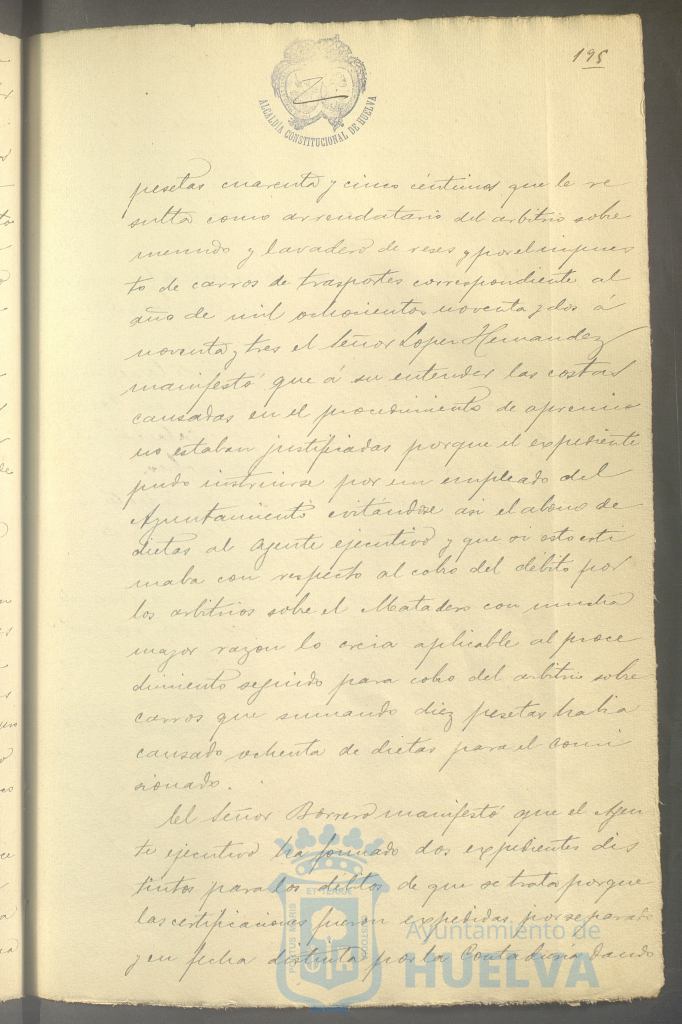 195
ALCALDÍA CONSTITUCIONAL DE HUELVA
pesetas cuarenta y cinco céntimos que le re
sulta como arrendatario del arbitrio sobre
menudo y lavadero de reses y por el impues
to de carros de trasportes correspondiente al
año de mil ochocientos noventa y dos á
noventa y tres el Señor Lopez Hernandez
manifestó que á su entender las costas
causadas en el procedimiento de apremio
no estaban justificadas porque el expediente
pudo instruirse por un empleado del
Ayuntamiento evitándose asi el abono de
dietas al Agente ejecutivo y que si esto esti
maba con respecto al cobro del débito por
los arbitrios sobre el Matadero con mucha
mayor razon lo creia aplicable al proce
dimiento seguido para cobro del arbitrio sobre
carros que sumando diez pesetas habia
causado ochenta de dietas para el comi
sionado.
El Señor Borrero manifestó que el Agen
te ejecutivo ha formado dos expedientes dis
tintos para los débitos de que se trata porque
las certificaciones fueron expedidas por separado
y en fecha distinta por la Contaduria dando
Ayuntamiento de
HUELVA